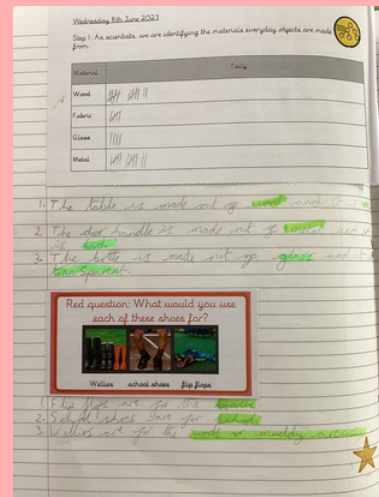 Wednesday 8th June 2023
Step 1: As scientists, we are identifying the materials everyday objects are made
from.
Material Tally
Wood
Fabric
Glass
Metal
1. The table is made out of wood and it is
2. The door handle is made out of metal and it
is hard.
3. The bottle is made out of glass and it is
transparent.
Red question: What would you use
each of these shoes for?
Wellies school shoes flip flops
1. Flip flops are for the
2. School shoes are for school.
3. Wellies are for the woods or muddy areas.